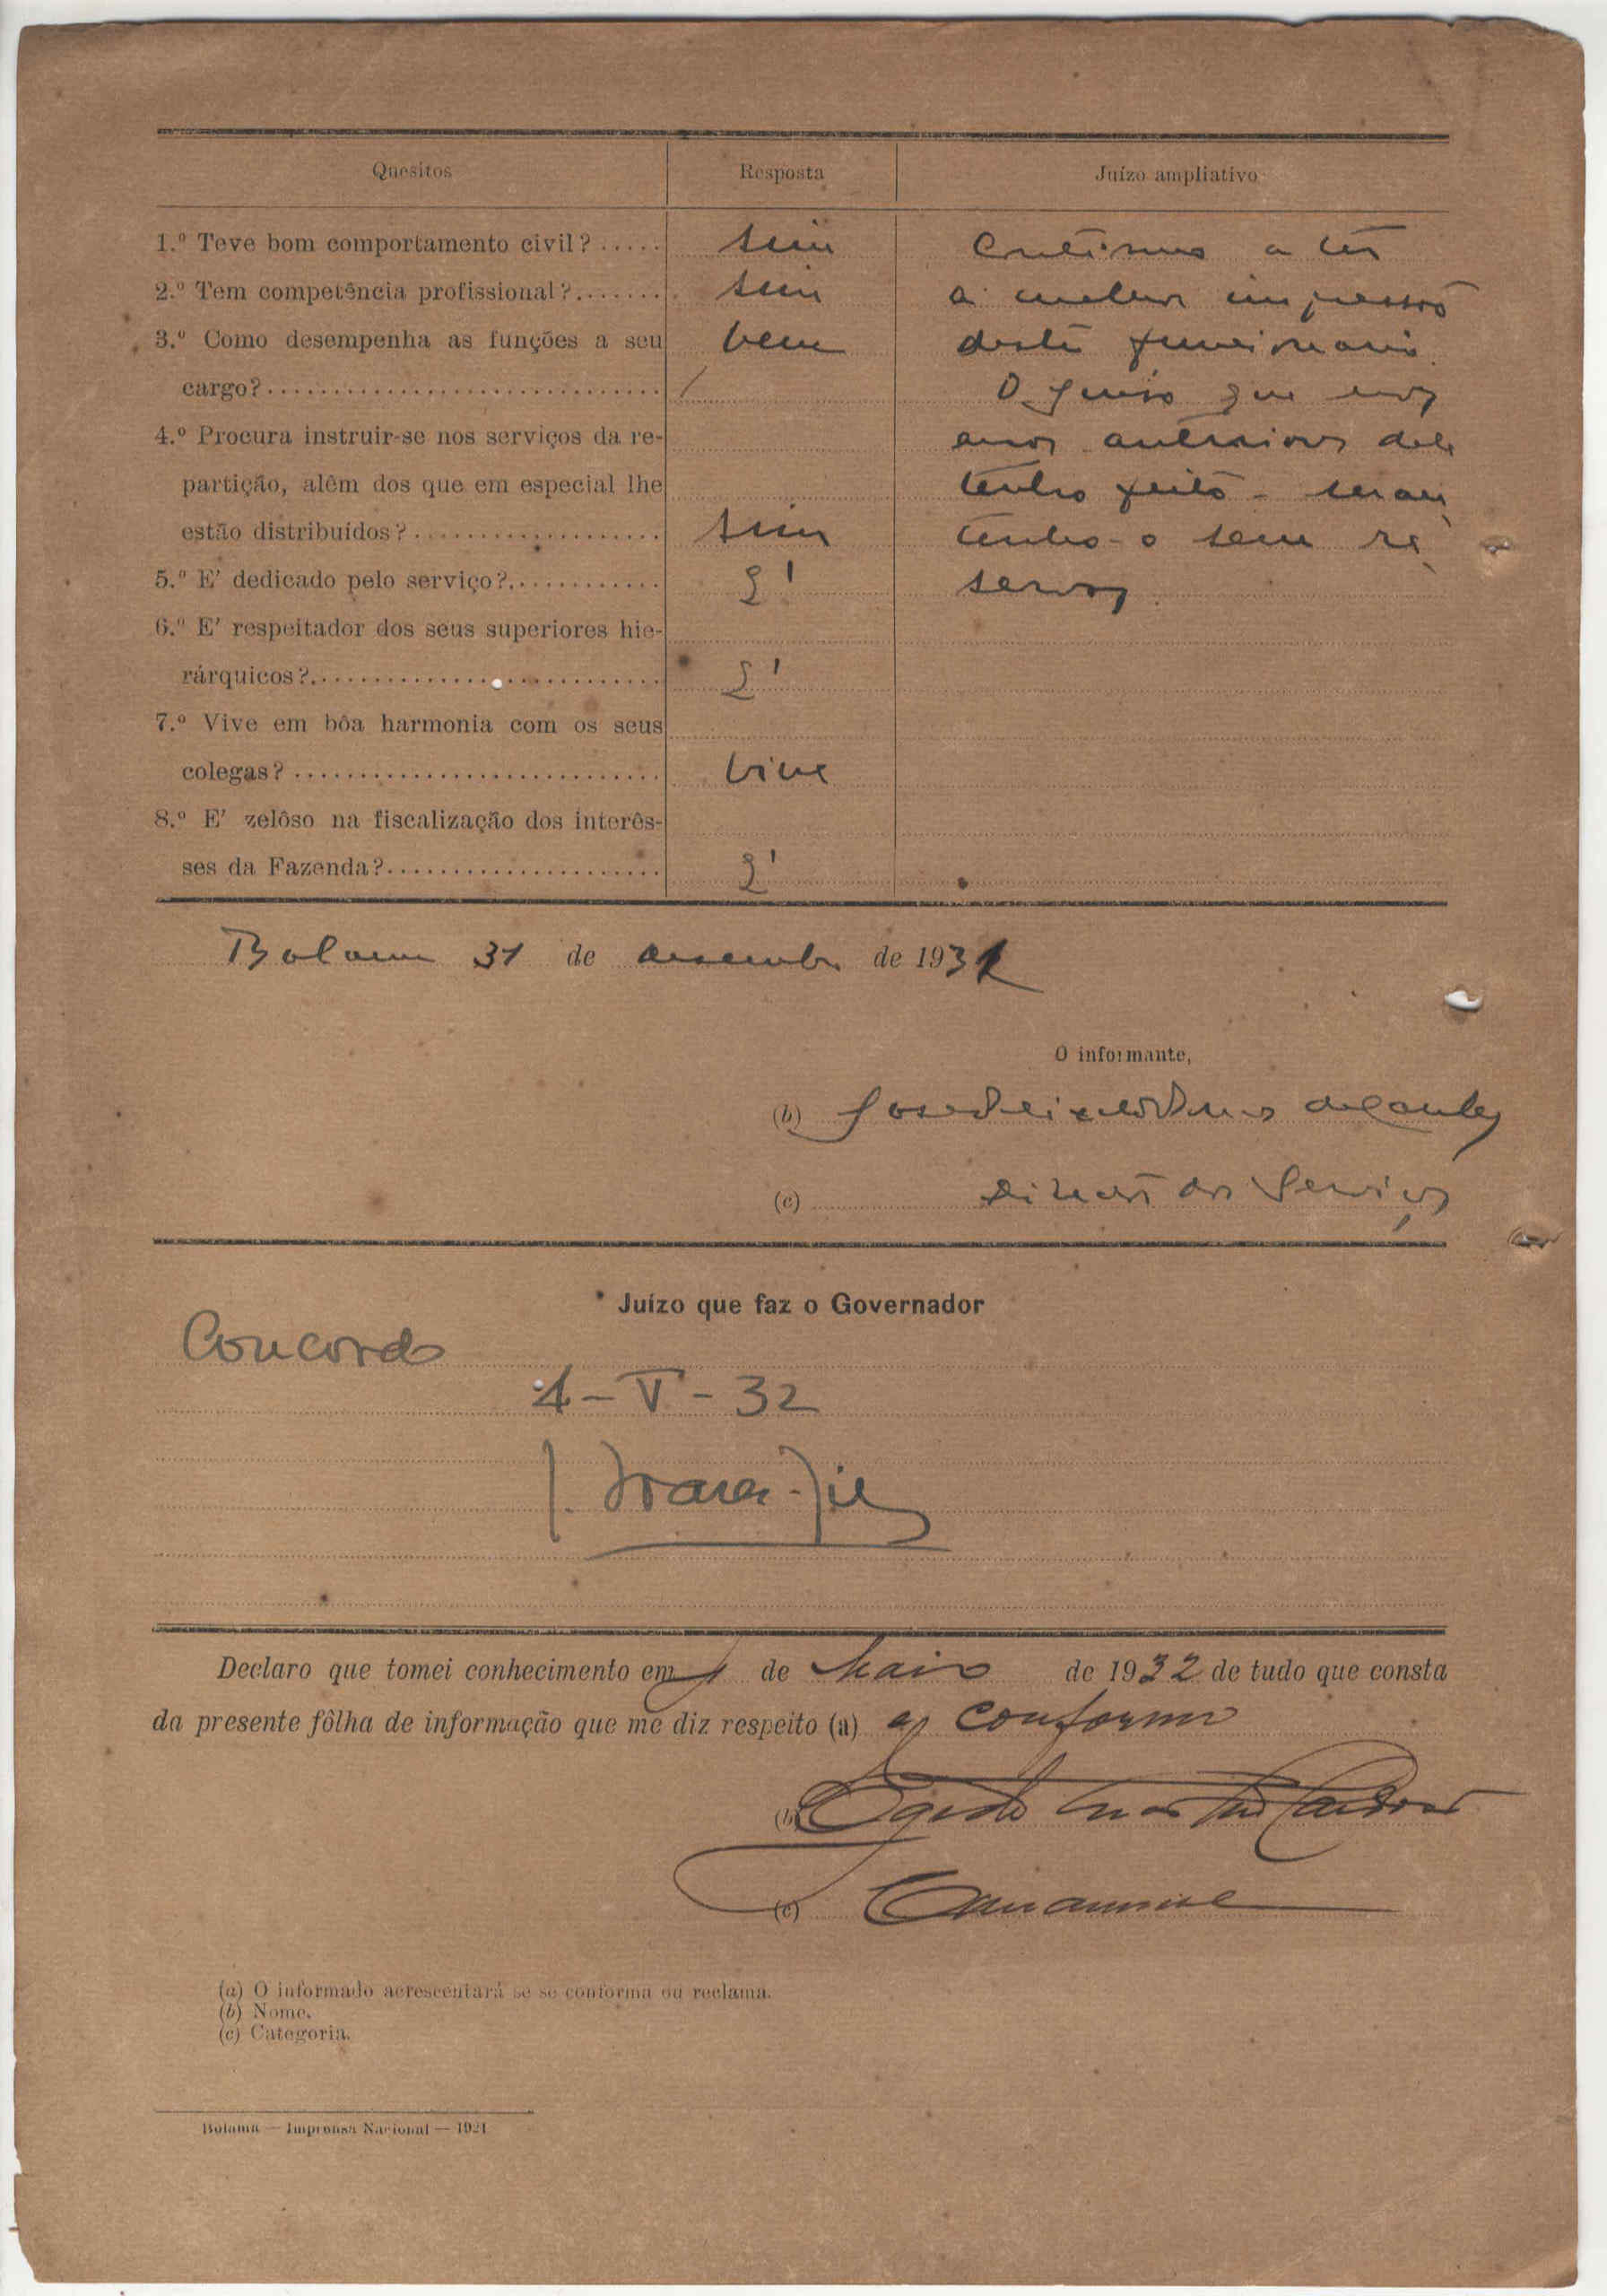 Quesitos Resposta Juízo ampliativo
1.º Teve bom comportamento civil?..... sim Continuo a ter
2.º Tem competência profissional?....... sim a melhor impressão
3.º Como desempenha as funções a seu bem deste funcionario.
cargo?.............................. O juiso que nos
4.º Procura instruir-se nos serviços da re- anos anteriores dele
partição, alêm dos que em especial lhe tenho feito - man
estão distribuídos?................... sim tenho-o sem re
5.º E' dedicado pelo serviço?............ É! servas
6.º E' respeitador dos seus superiores hie-
rárquicos?........................... É!
7.º Vive em bôa harmonia com os seus
colegas?............................ Vive
8.º E' zelôso na fiscalização dos interês-
ses da Fazenda?..................... É!
Bolama 31 de desembro de 1931
O informante,
(b) José Peixoto de
(c) Director dos Serviços
Juízo que faz o Governador
Concordo
4-V-32
J.
Declaro que tomei conhecimento em de Maio de 1932 de tudo que consta
da presente fôlha de informação que me diz respeito (a) e conformo
(b) Cardoso
(c)
(a) O informado acrescentará se se conforma ou reclama.
(b) Nome.
(c) Categoria.
Bolama — Imprensa Nacional — 1921